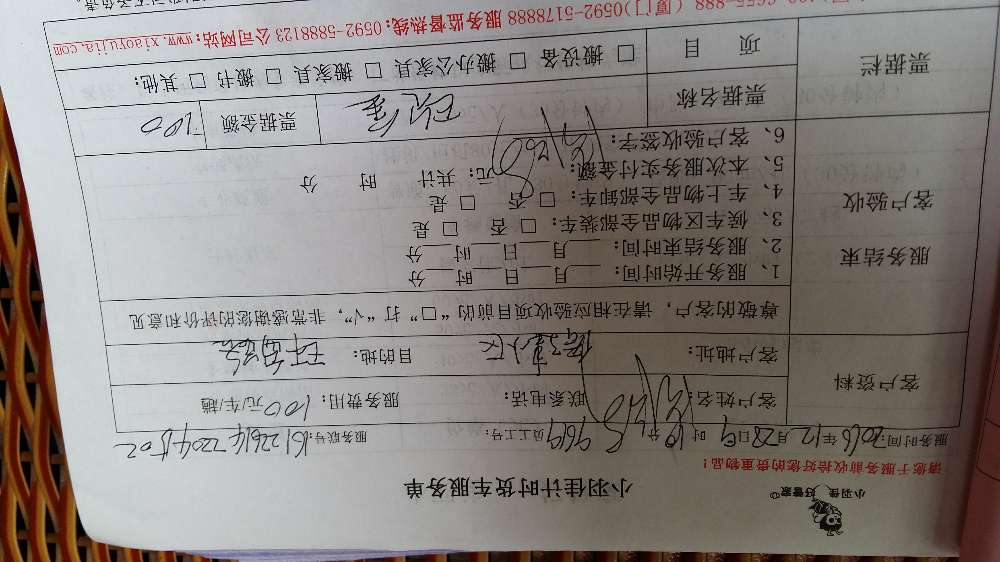 小羽佳 好管家
小羽佳计时货车服务单
请您于服务前收拾好您的贵重物品!
服务时间: 2016年12月28日9时10分 员工号: 5969 服务联号:
客户资料
客户姓名: 联系电话: 服务费用: 100元/车/趟
客户地址: 小区 目的地:
尊敬的客户,请在相应验收项目前的“□”打“√”,非常感谢您的评价和意见
服务结束
客户验收
1、服务开始时间:___月___日___时___分
2、服务结束时间:___月___日___时___分
3、候车区物品全部装车: □ 否 □ 是
4、车上物品全部卸车: □ 否 □ 是
5、本次服务实付金额: 元; 共计 时 分
6、客户验收签字:
票据栏
票据名称 现金 票据金额 100
项 目 □ 搬设备 □ 搬办公家具 □ 搬家具 □ 搬书 □ 其他:
(厦门)0592-5178888 服务监督热线:0592-5888123 公司网站:www.xiaoyujia.com